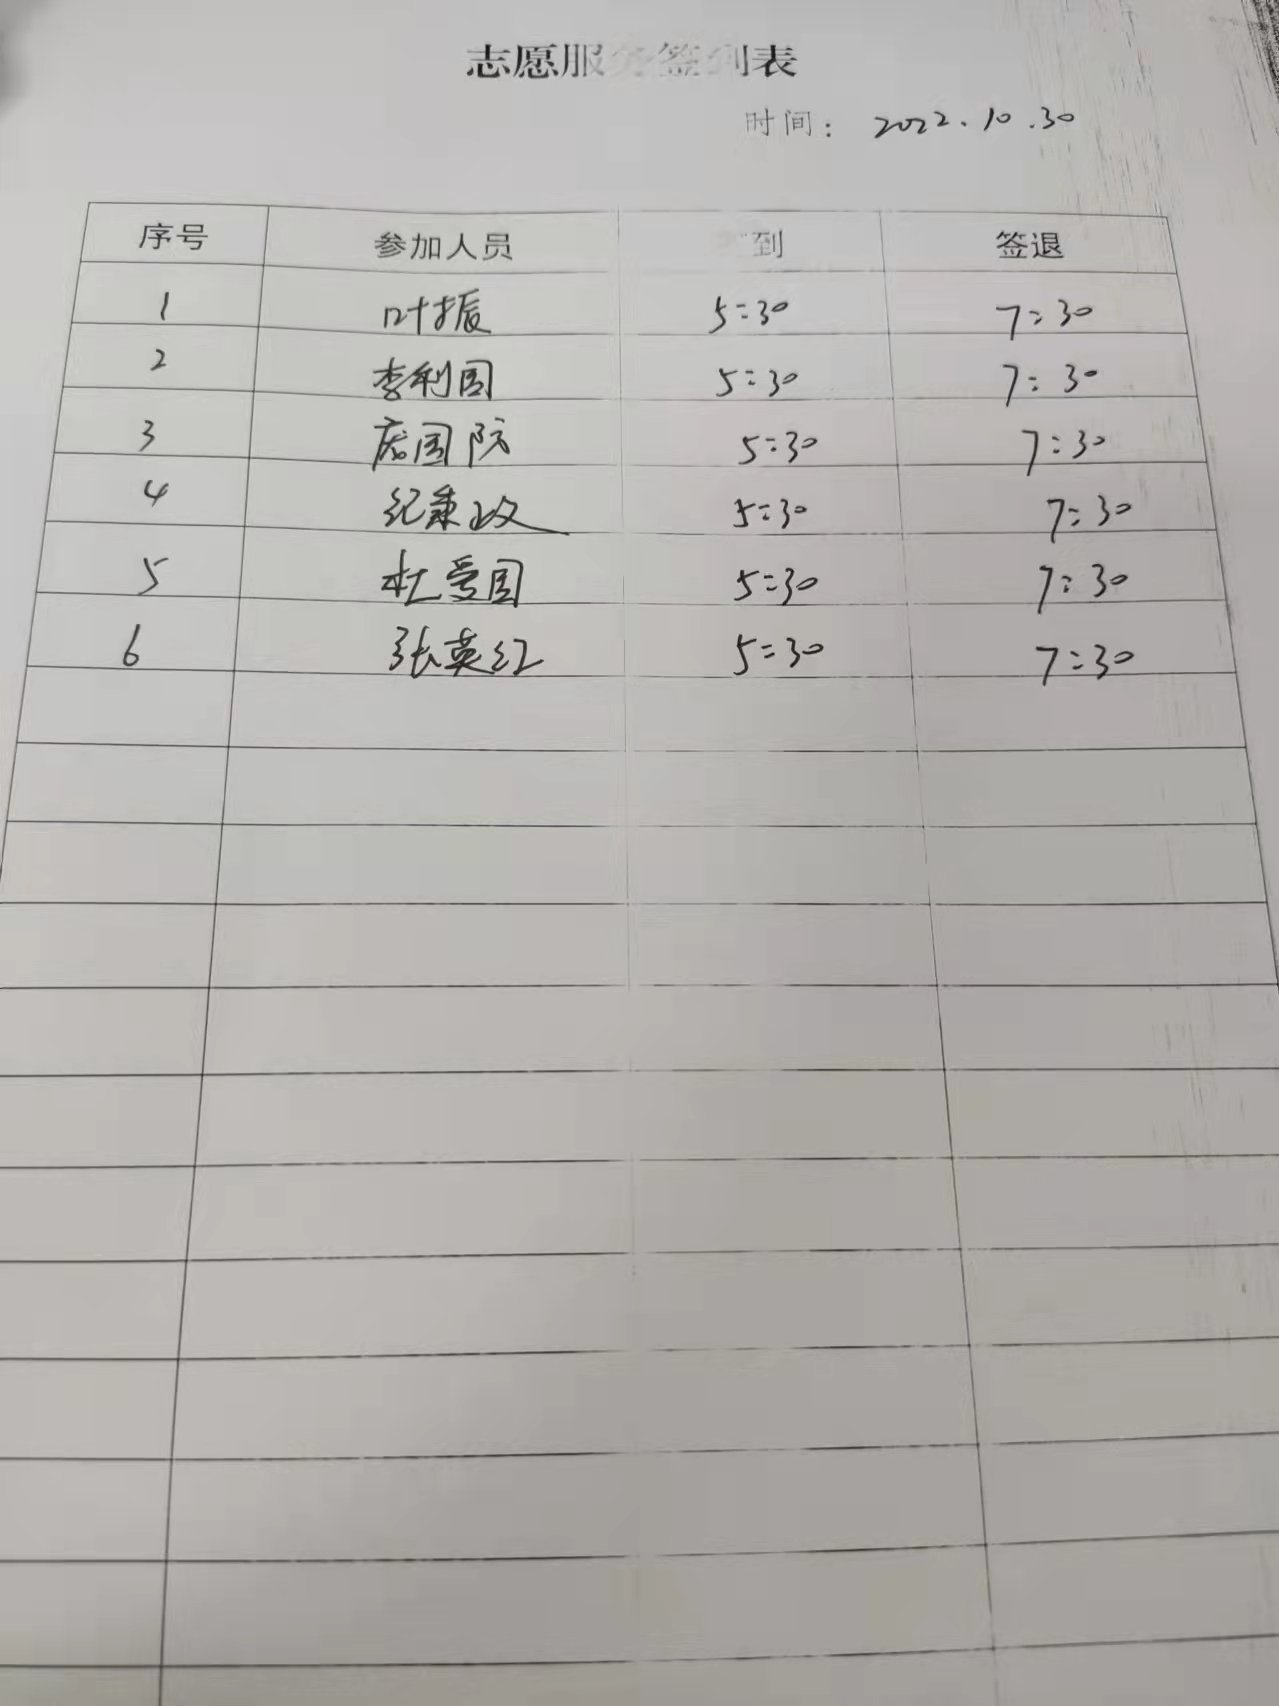 志愿服务签到表
时间： 2022.10.30
序号 参加人员 签到 签退
1 叶振 5:30 7:30
2 李利国 5:30 7:30
3 国防 5:30 7:30
4 纪秉政 5:30 7:30
5 杜爱国 5:30 7:30
6 张英红 5:30 7:30